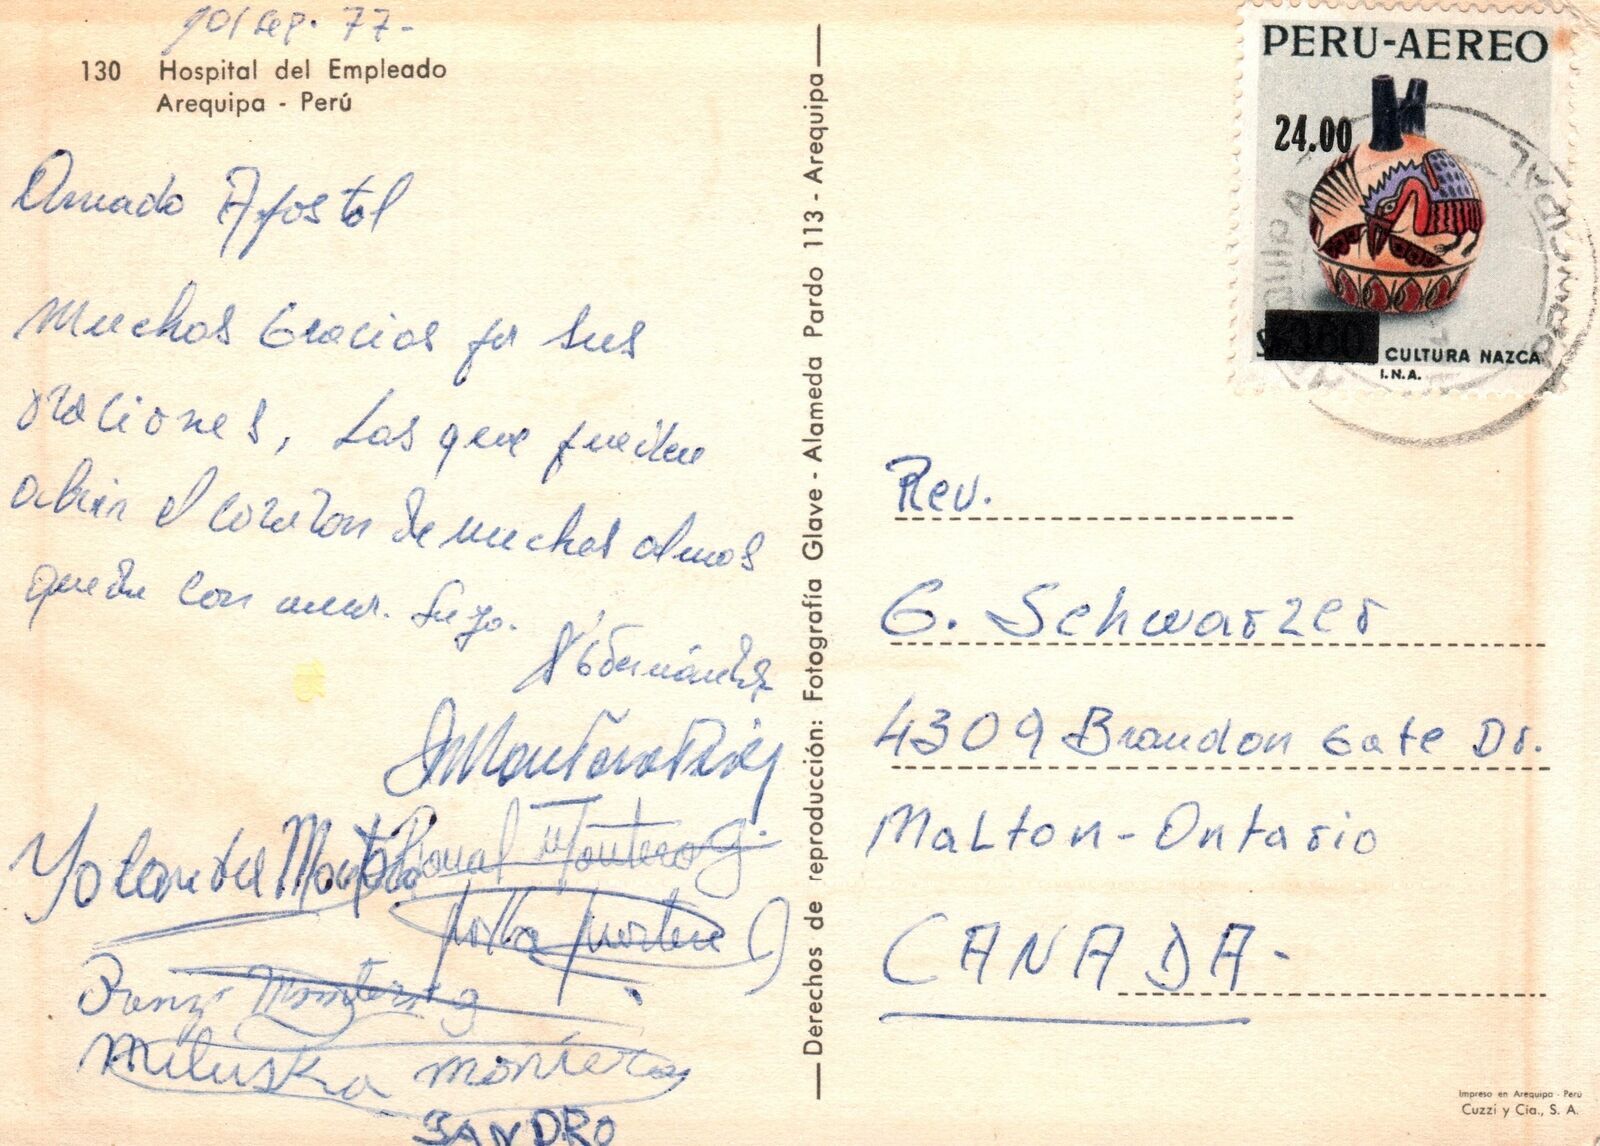 10 Sep. 77-
130 Hospital del Empleado
Arequipa - Perú
Amado Apostol
Muchas Gracias por sus
oraciones, Las que pueden
abrir el corazon de muchas almas
queda con amor. Suyo.
Yolanda de Montero
Raual Montero G.
Montero G
Miluska Montero
SANDRO
Derechos de reproducción: Fotografía Glave - Alameda Pardo 113 - Arequipa
PERU-AEREO
24.00
CULTURA NAZCA
I.N.A.
Rev.
G. Schwarzer
4309 Brandon Gate Dr.
Malton-Ontario
CANADA-
Impreso en Arequipa - Perú
Cuzzi y Cia., S. A.